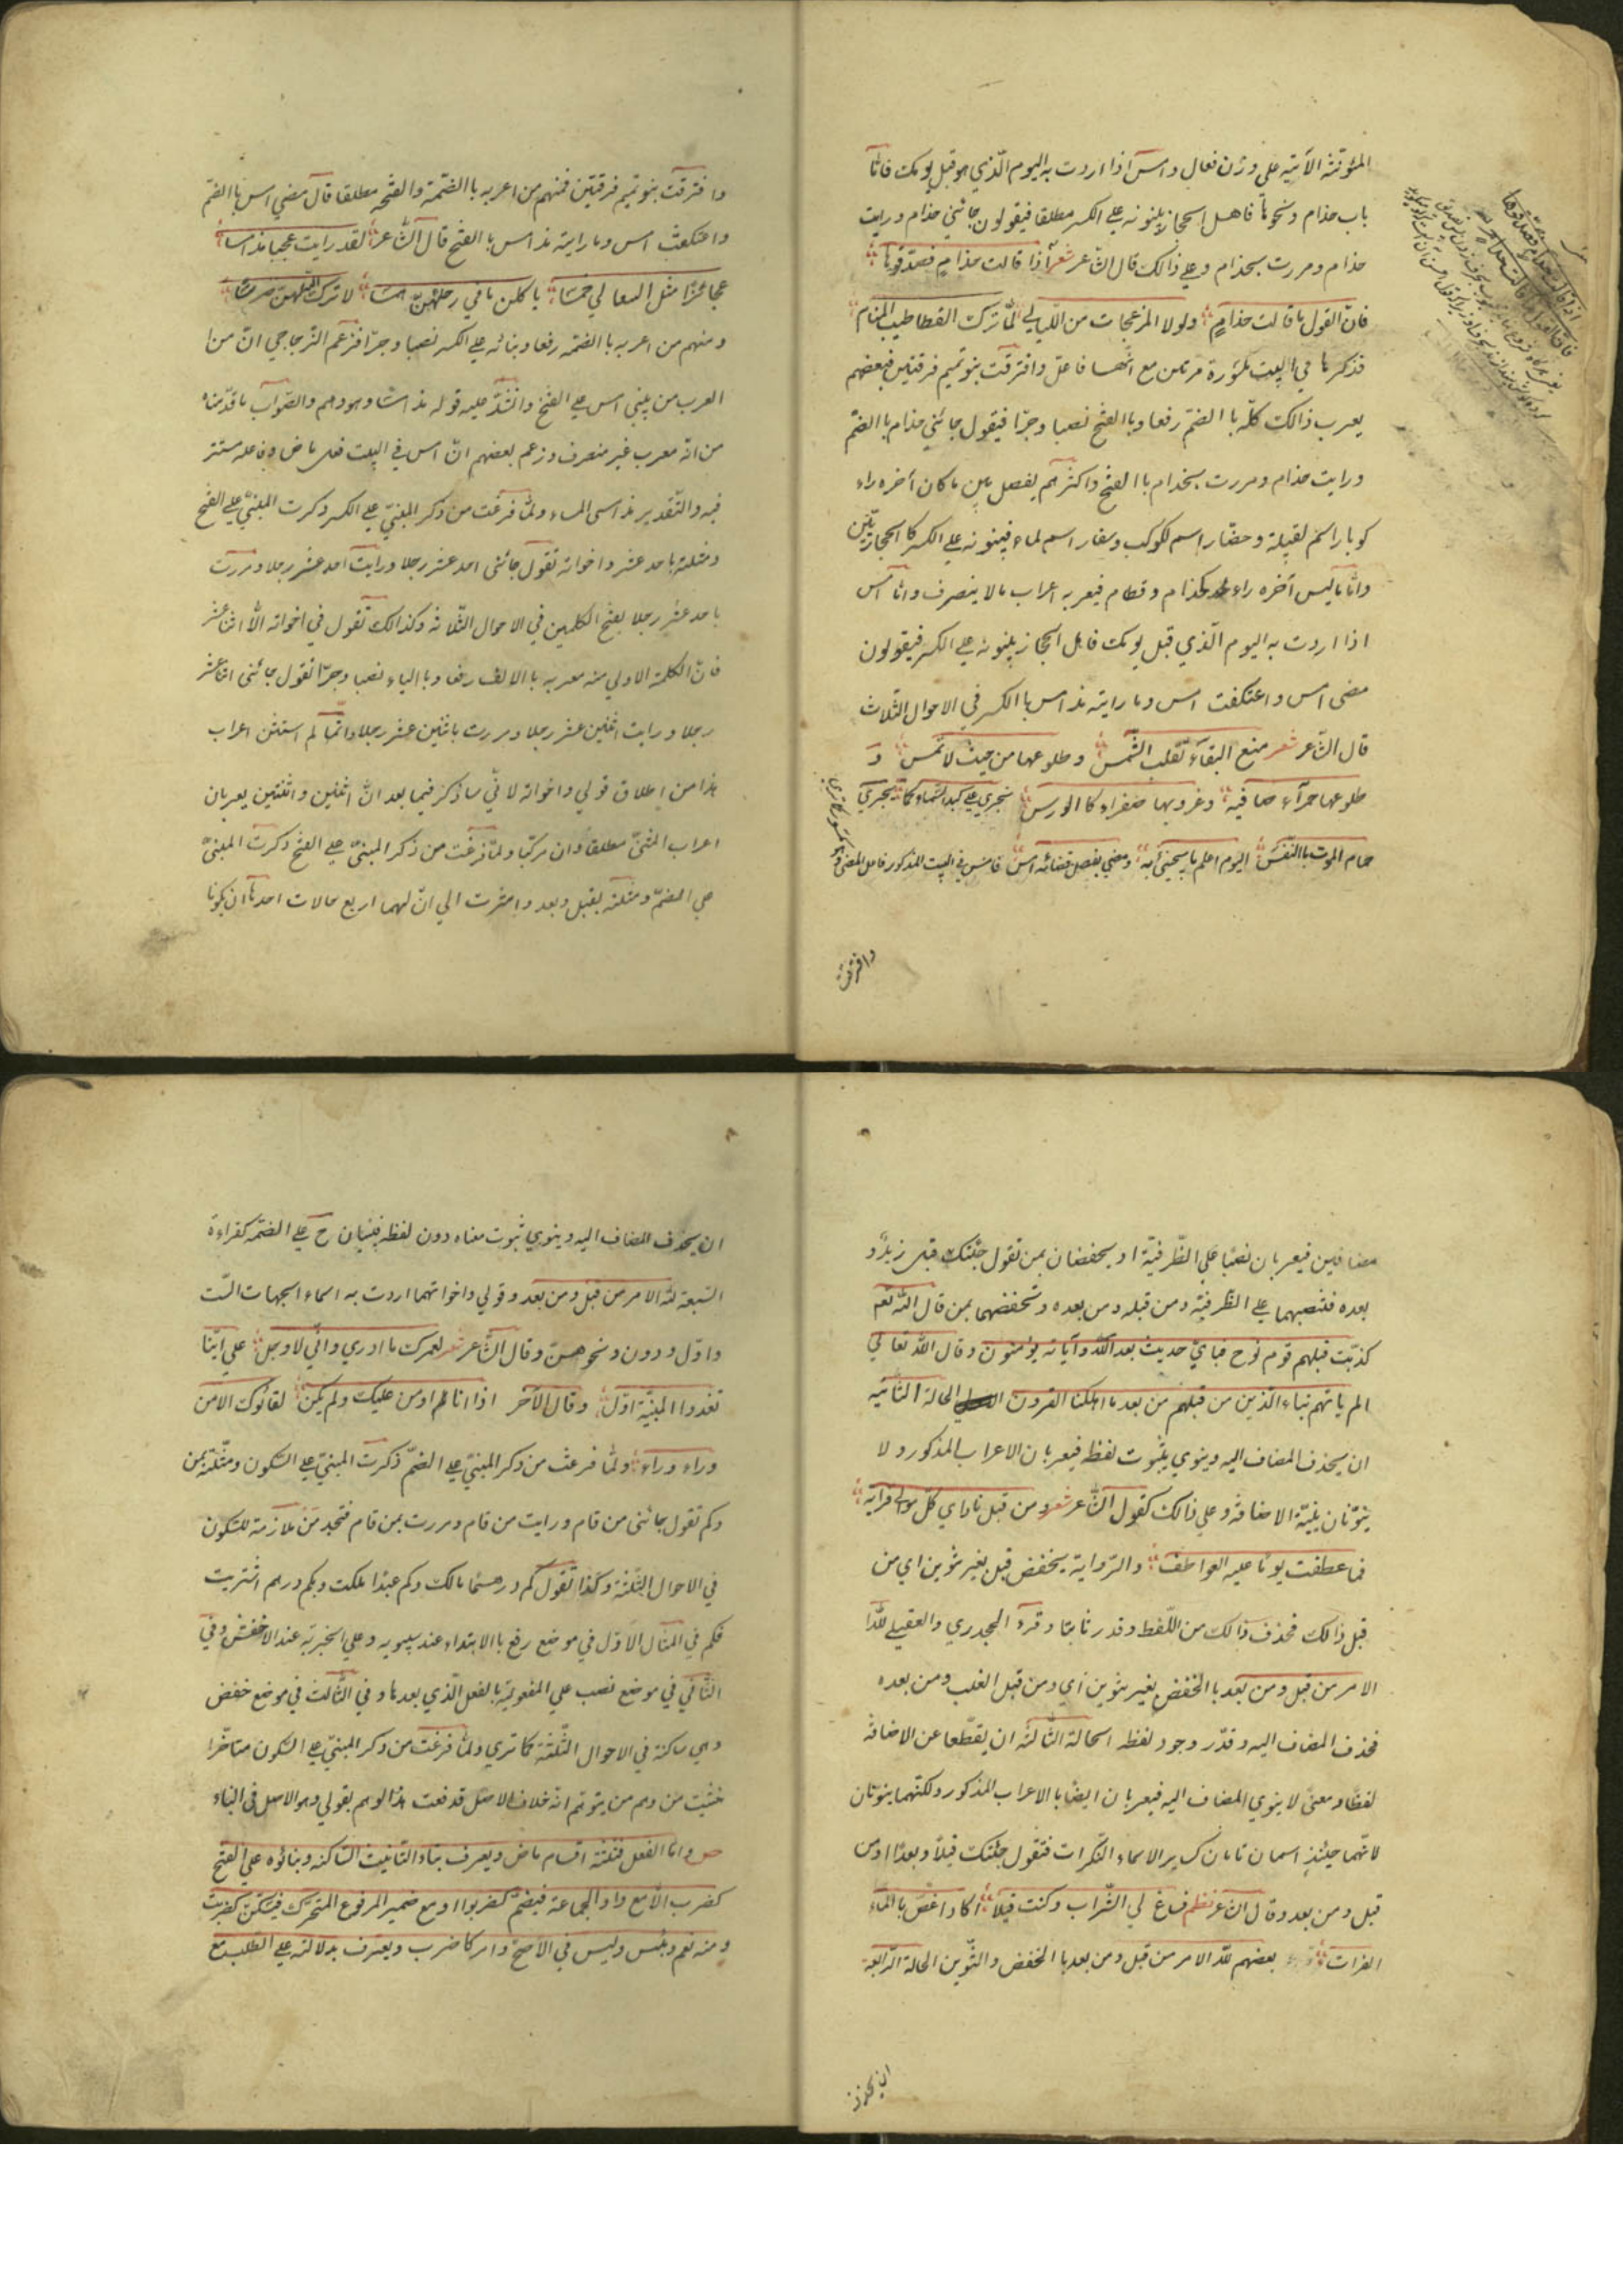 المؤنّثة الآتية على وزن فعال وامس اذا اردت به اليوم الّذي هو قبل يومك فامّا
باب حذام ونحوها فاهل الحجاز يبنونه علي الكسر مطلقا فيقولون جائتني حذام ورايت
حذام ومررت بحذام وعلي ذالك قال الشّاعر شعر اذا قالت حذام فصدّقوها
فانّ القول ما قالت حذام ولولا المزعجات من اللّيالي لمّا ترك القطا طيب المنام
فذكرها في البيت مكسورة مرتين مع انّها فاعل وافترقت بنو تميم فرقتين فبعضهم
يعرب ذالك كلّه باالضمّ رفعا وباالفتح نصبا وجرّا فيقول جائتني حذام باالضمّ
ورايت حذام ومررت بحذام باالفتح واكثرهم يفصل بين ما كان آخره راء
كوبار اسم لقبيلة وحضار اسم لكوكب وسفار اسم لماء فيبنونه علي الكسر كاالحجازيّين
وامّا ما ليس آخره راء كحذام وقطام فيعربه اعراب ما لا ينصرف وامّا امس
اذا اردت به اليوم الّذي قبل يومك فاهل الحجاز يبنونه علي الكسر فيقولون
مضى امس واعتكفت امس وما رايته مذ امس باالكسر في الاحوال الثلاث
قال الشّاعر شعر منع البقآء تقلب الشّمس وطلوعها من حيث لا تمس و
طلوعها حمرآء صافية وغروبها صفراء كاالورس تجري علي كبد السّماء كما يجري
حمام الموت باالنّفس اليوم اعلم ما يجيئ به ومضي بفصل قضائه امس فامس في البيت المذكور فاعل لمضى وهو مكسور كما ترى
وافترقت
وافترقت بنو تميم فرقتين فمنهم من اعربه باالضّمة والفتحه مطلقا قال مضي امس باالضمّ
واعتكفت امس وما رايته مذ امس باالفتح قال الشّاعر لقد رايت عجبا مذ امسا
عجائزا مثل السعالي خمسا ياكلن ما في رحلهنّ همسا لا ترك اللّه لهنّ ضرسا
ومنهم من اعربه باالضمّه رفعا وبنائه علي الكسر نصبا وجرّا فزعم الزّجاجي انّ من
العرب من يبني امس علي الفتح وانشد عليه قوله مذ امسا وهو وهم والصّواب ما قدّمناه
من انه معرب غير منصرف وزعم بعضهم انّ امس في البيت فعل ماض وفاعله مستتر
فيه والتّقدير مذ امسى المساء ولمّا فرغت من ذكر المبنيّ علي الكسر ذكرت المبنيّ علي الفتح
ومثلته باحد عشر واخواته تقول جائني احد عشر رجلا ورايت احد عشر رجلا ومررت
باحد عشر رجلا بفتح الكلمين في الاحوال الثّلاثه وكذالك تقول في اخواته الّا اثنا عشر
فانّ الكلمة الاولي منه معربه باالالف رفعا وباالياء نصبا وجرّا تقول جائني اثنا عشر
رجلا ورايت اثنين عشر رجلا ومررت باثنين عشر رجلا وانّما لم استثن اعراب
هذا من اطلاق قولي واخواته لانّي ساذكر فيما بعد انّ اثنين واثنتين يعربان
اعراب المثنّى مطلقا وان مركّبا ولمّا فرغت من ذكر المبنيّ علي الفتح ذكرت المبنيّ
علي الضمّ ومثلته بقبل وبعد واشرت الي انّ لهما اربع حالات احدها ان يكونا
مضافين فيعربان نصبًا علي الظّرفيّة او يحفضان بمن تقول جئتك قبل زيد و
بعده فتنصبهما علي الظّرفيّة ومن قبله ومن بعده وتخفضهما بمن قال اللّه تعم
كذّبت قبلهم قوم نوح فباي حديث بعد اللّه وآياته يؤمنون وقال اللّه تعالي
الم ياتهم نباء الّذين من قبلهم من بعد ما اهلكنا القرون الحالة الثّانيه
ان يحذف المضاف اليه وينوي بثبوت لفظه فيعربان الاعراب المذكور ولا
ينوّنان بنيّة الاضافة وعلي ذالك كقول الشّاعر شعر ومن قبل نادي كلّ مولي قرابة
فما عطفت يومًا عليه العواطف والرّواية يخفض قبل بغير تنوين اي من
قبل ذالك فحذف ذالك من اللّفظ وقدر ثابتا وقرء الجحدري والعقيلي للّه
الامر من قبل ومن بعد باالخفض بغير تنوين اي ومن قبل الغلب ومن بعده
فحذف المضاف اليه وقدّر وجود لفظه الحالة الثّالثه ان يقطّعا عن الاضافة
لفظًا ومعنىً لا ينوي المضاف اليه فيعربان ايضًا باالاعراب المذكور ولكنّهما ينونان
لانّهما حينئذٍ اسمان تامان كساير الاسماء النّكرات فتقول جئتك قبلًا وبعدًا ومن
قبل ومن بعد وقال الشّاعر نظم فساغ لي الشّراب وكنت قبلًا اكاد اغصّ باالماء
الفرات وقرء بعضهم للّه الامر من قبل ومن بعد باالخفض والتّنوين الحالة الرّابعة
ان يحذف
ان يحذف المضاف اليه وينوي ثبوت معناه دون لفظه فيبنيان ح علي الضمّه كقراءة
السّبعة للّه الامر من قبل ومن بعد وقولي واخواتهما اردت به اسماء الجهات السّت
واوّل ودون ونحوهنّ وقال الشّاعر شعر لعمرك ما ادري وانّي لاوجل علي ايّنا
تغدوا المنيّة اوّل وقال الآخر اذا انا لم اومن عليك ولم يكن لقائوك الا من
وراء وراء ولمّا فرغت من ذكر المبنيّ علي الضمّ ذكرت المبنيّ علي السّكون ومثّلته بمن
وكم تقول جائني من قام ورايت من قام ومررت بمن قام فتجد من ملازمة للسّكون
في الاحوال الثّلثة وكذا تقول كم درهمًا مالك وكم عبدًا ملكت وبكم درهم اشتريت
فكم في المثال الاوّل في موضع رفع باالابتداء عند سيبويه وعلي الخبريّه عند الاخفش وفي
الثّاني في موضع نصب علي المفعوليّة باالفعل الّذي بعدها وفي الثّالث في موضع خفض
وهي ساكنة في الاحوال الثّلثة كما تري ولمّا فرغت من ذكر المبنيّ علي السّكون متاخّرا
خشيت من وهم من يتوهّم انه خلاف الاصل فدفعت هذا الوهم بقولي وهو الاصل في البناء
ص وامّا الفعل فثلثة اقسام ماض ويعرف بتاء التّانيث السّاكنه وبنائوه علي الفتح
كضرب الّا مع واو الجماعة فيضمّ كضربوا او مع ضمير المرفوع المتحرّك فيسكّن كضربت
ومنه نعم وبئس وليس في الاصحّ وامر كاضرب ويعرف بدلالته علي الطلب مع